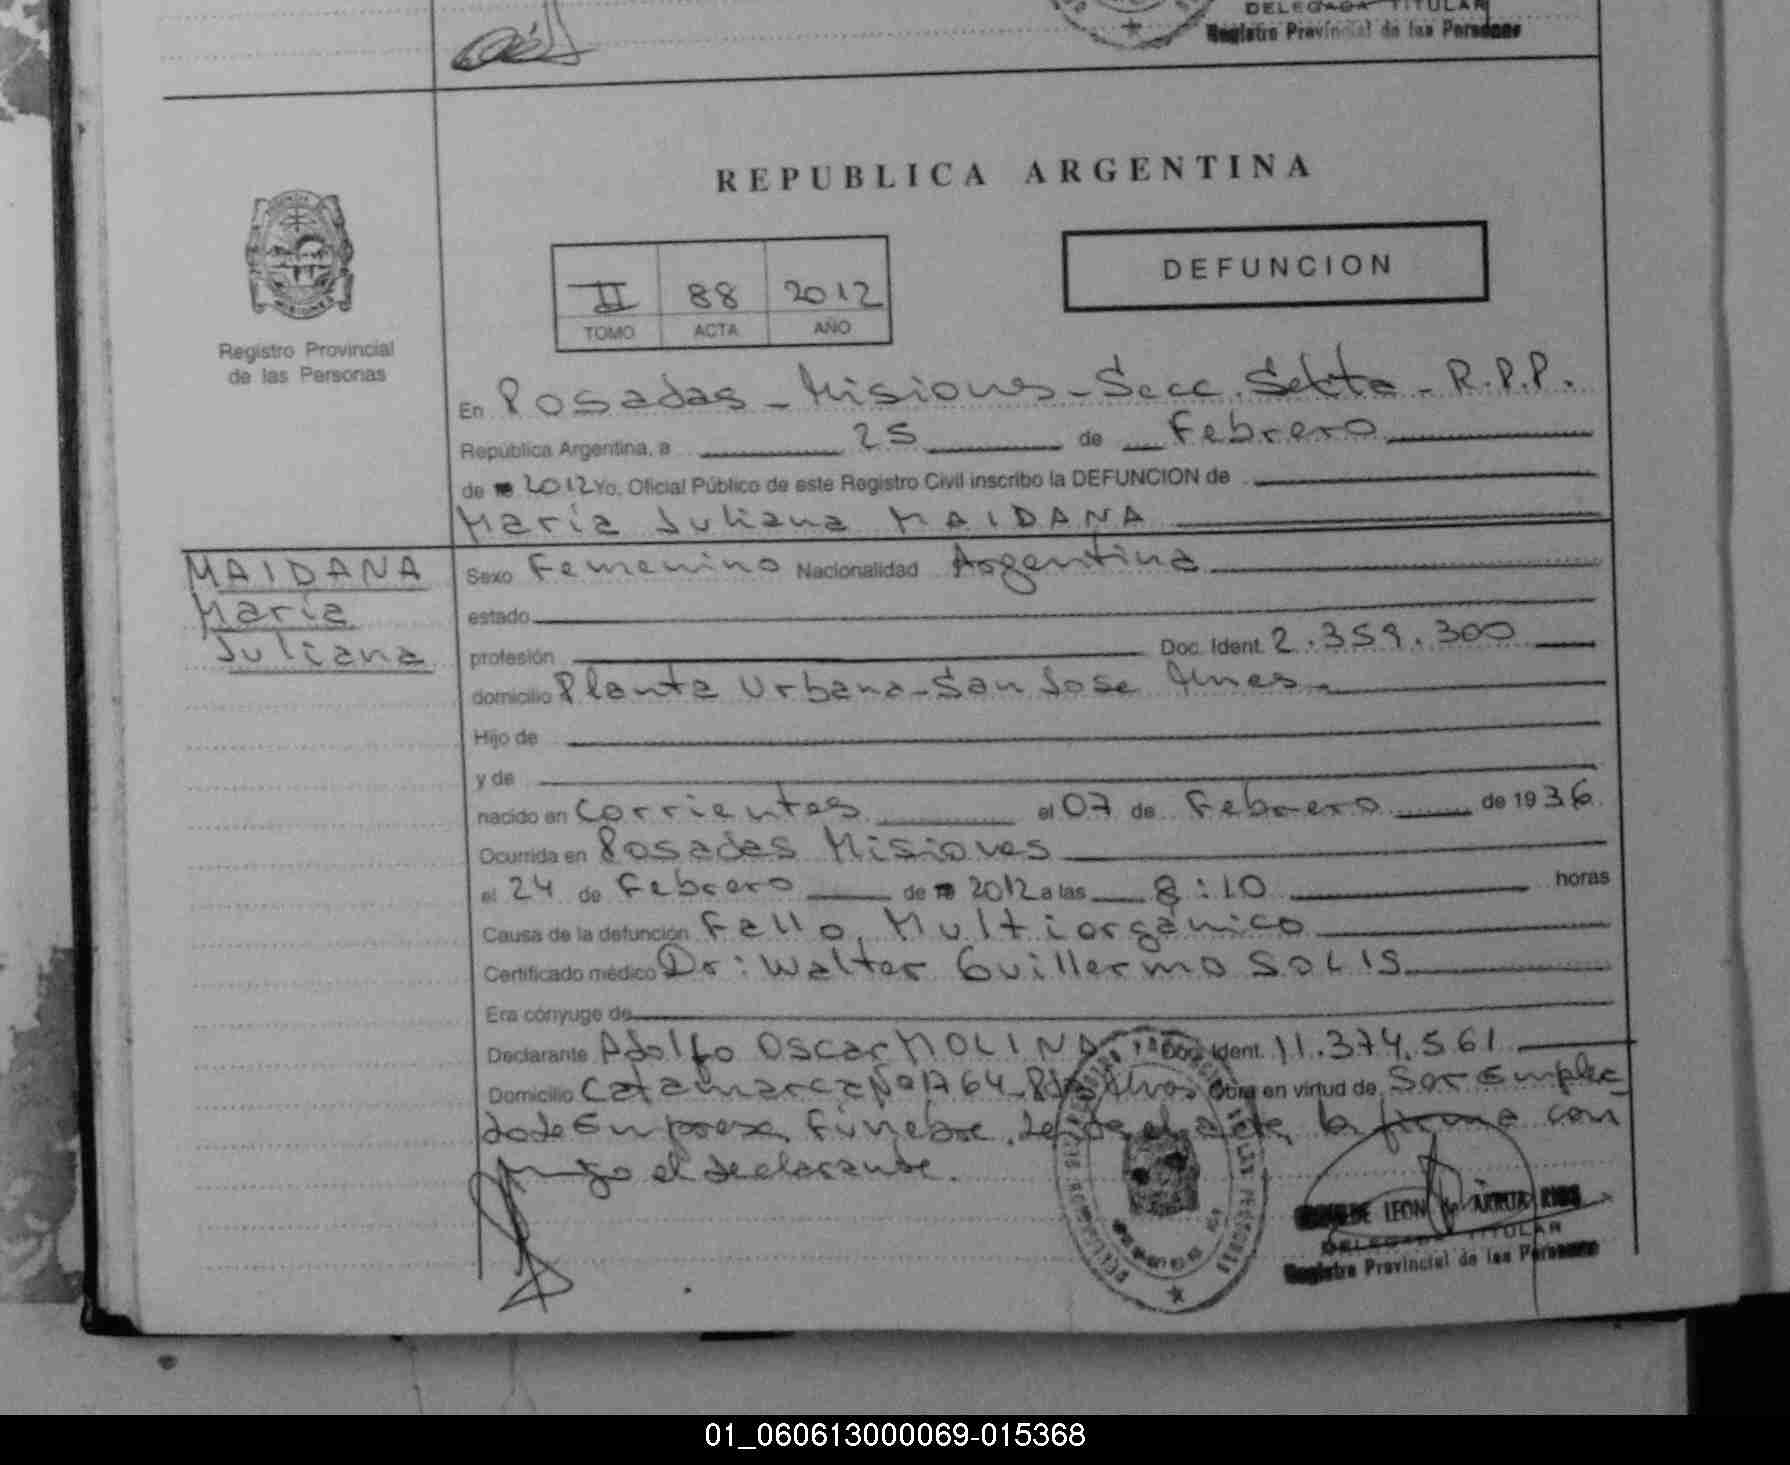 DELEGADA TITULAR
Registro Provincial de las Personas
REPUBLICA ARGENTINA
DEFUNCION
II 88 2012
TOMO ACTA AÑO
Registro Provincial
de las Personas
En Posadas - Misiones - Secc. Sexta - R.P.P.
República Argentina, a 25 de Febrero
de 2012 Yo, Oficial Público de este Registro Civil inscribo la DEFUNCION de
María Juliana MAIDANA
MAIDANA
María
Juliana
Sexo Femenino Nacionalidad Argentina
estado
profesión Doc. Ident. 2.359.300
domicilio Planta Urbana - San Jose Mnes.
Hijo de
y de
nacido en Corrientes el 07 de Febrero de 1936
Ocurrida en Posadas Misiones
el 24 de Febrero de 2012 a las 8:10 horas
Causa de la defunción Fallo Multiorgánico
Certificado médico Dr: Walter Guillermo SOLIS
Era cónyuge de
Declarante Adolfo Oscar MOLINA Doc. Ident. 11.374.561
Domicilio Catamarca Nº 1764 - Pdas Mnes Obra en virtud de Ser Emplea
do de Empresa Fúnebre. Leída el acta, la firma con
migo el declarante.
DE LEON ARRUA RIOS
DELEGADA TITULAR
Registro Provincial de las Personas
01_060613000069-015368